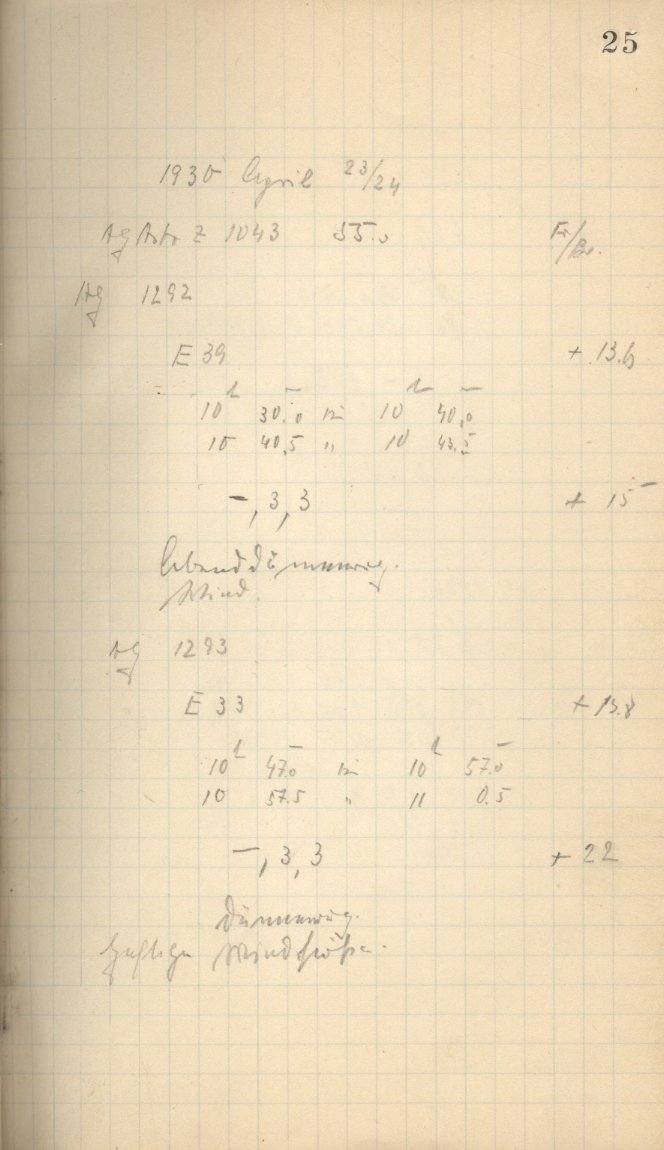 25
1930 April 23/24
Ag Astr Z 1043 55.0 Fr/Br.
Ag 1292
E 39 + 13.6
10h 30.0m bis 10h 40.0m
10 40.5 " 10 43.5
–, 3, 3 + 15
Abenddämmerg.
Wind.
Ag 1293
E 33 + 13.8
10h 47.0m bis 10h 57.0m
10 57.5 " 11 0.5
–, 3, 3 + 22
Dämmerg.
heftige Windstöße.